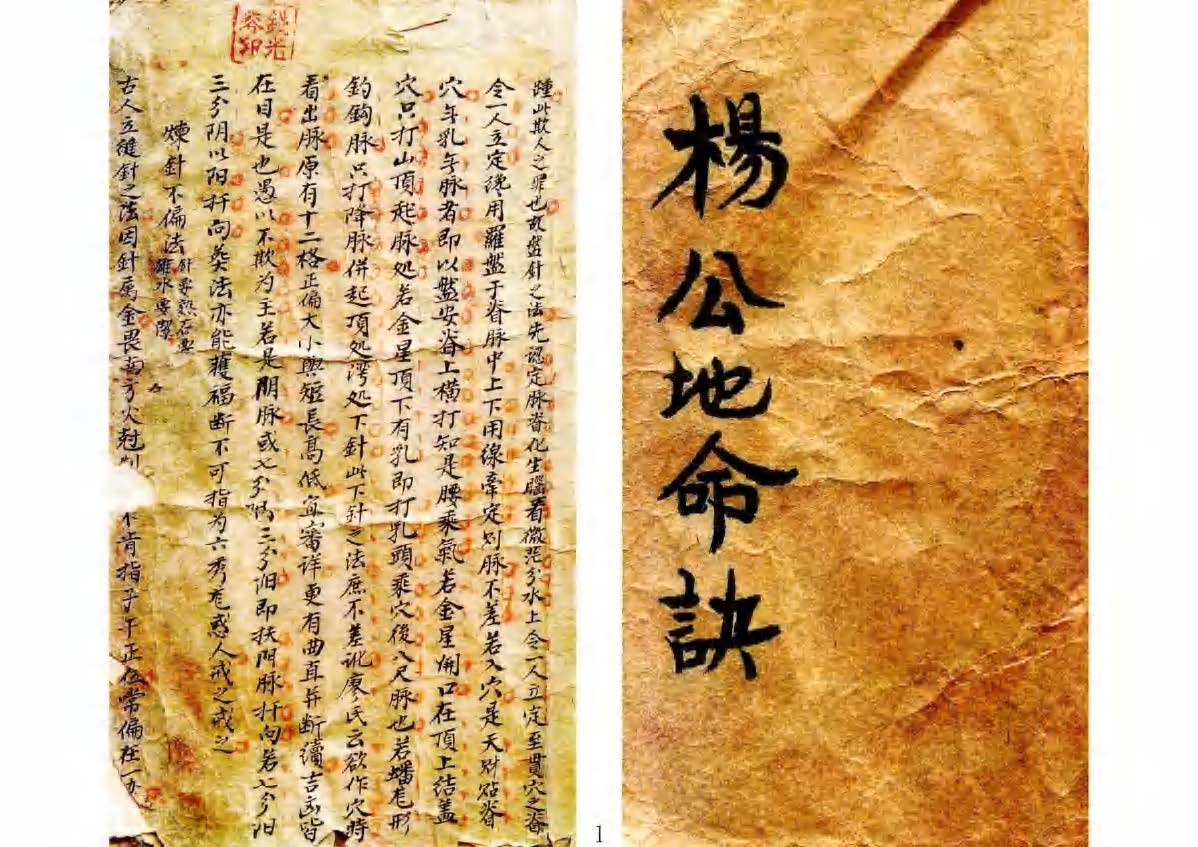 楊公地命訣
踵此欺人之罪也故盤針之法先認定脉脊化生腦看微茫分水上令一人立定至貫穴之脊
令一人立定纔用羅盤于脊脉中上下用線牽定則脉不差若入穴是天財點脊
穴年乳年脉者即以盤安脊上横打知是腰乘氣若金星開口在頂上結盖
穴只打山頂起脉処若金星頂下有乳即打乳頭乘穴後八尺脉也若蟠龙形
釣鈎脉只打降脉併起頂処湾処下針此下針之法庶不差訛廖氏云欲作穴時
看出脉原有十二格正偏大小與短長高低宜審详更有曲直并断續吉凶皆
在目是也愚以不欺为主若是阴脉或七分阴三分阳即扶阴脉扦向若七分阳
三分阴以阳扦向葬法亦能獲福断不可指为六秀龙惑人戒之戒之
煉針不偏法
針要熟石要
雄水要潔
古人立縫針之法因針属金畏南方火尅
不肯指子午正位常偏在一
1